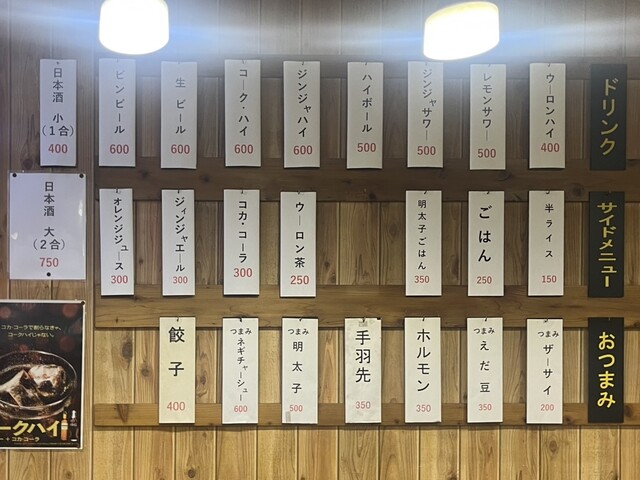 ドリンク
ウーロンハイ
400
レモンサワー
500
ジンジャサワー
500
ハイボール
500
ジンジャハイ
600
コーク・ハイ
600
生ビール
600
ビンビール
600
日本酒 小
(1合)
400
サイドメニュー
半ライス
150
ごはん
250
明太子ごはん
350
ウーロン茶
250
コカ・コーラ
300
ジィンジャエール
300
オレンジジュース
300
日本酒 大
(2合)
750
おつまみ
つまみ
ザーサイ
200
つまみ
えだ豆
350
ホルモン
350
手羽先
350
つまみ
明太子
500
つまみ
ネギチャーシュー
600
餃子
400
コカ・コーラで割らなきゃ、
コークハイじゃない。
ークハイ
ー + コカ・コーラ